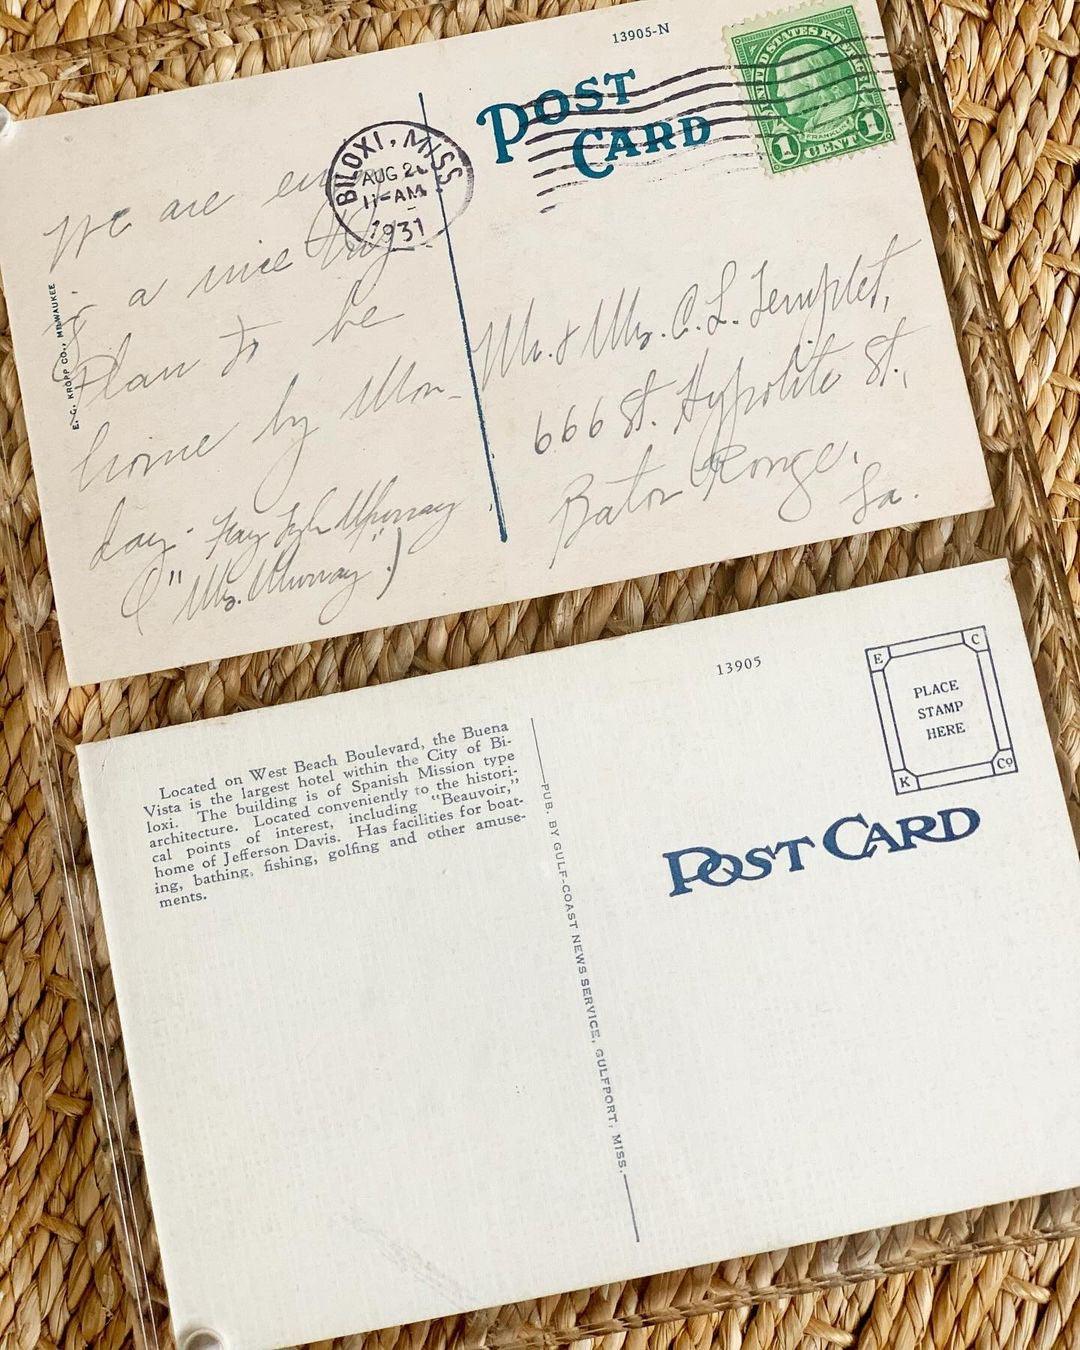 13905-N
POST
CARD
UNITED STATES POSTAGE
FRANKLIN
1 CENT 1
BILOXI, MISS.
AUG
11-AM
1931
We are
a nice trip
Plan to be
home by Mon-
day.
("Mrs. Murray".)
E. C. KROPP CO., MILWAUKEE
Mr. & Mrs. C. L. Templet,
666 St. Hypolite St.,
Baton Rouge,
La.
13905
E C
PLACE
STAMP
HERE
K Co
POST CARD
Located on West Beach Boulevard, the Buena
Vista is the largest hotel within the City of Bi-
loxi. The building is of Spanish Mission type
architecture. Located conveniently to the histori-
cal points of interest, including "Beauvoir,"
home of Jefferson Davis. Has facilities for boat-
ing, bathing, fishing, golfing and other amuse-
ments.
PUB. BY GULF-COAST NEWS SERVICE, GULFPORT, MISS.